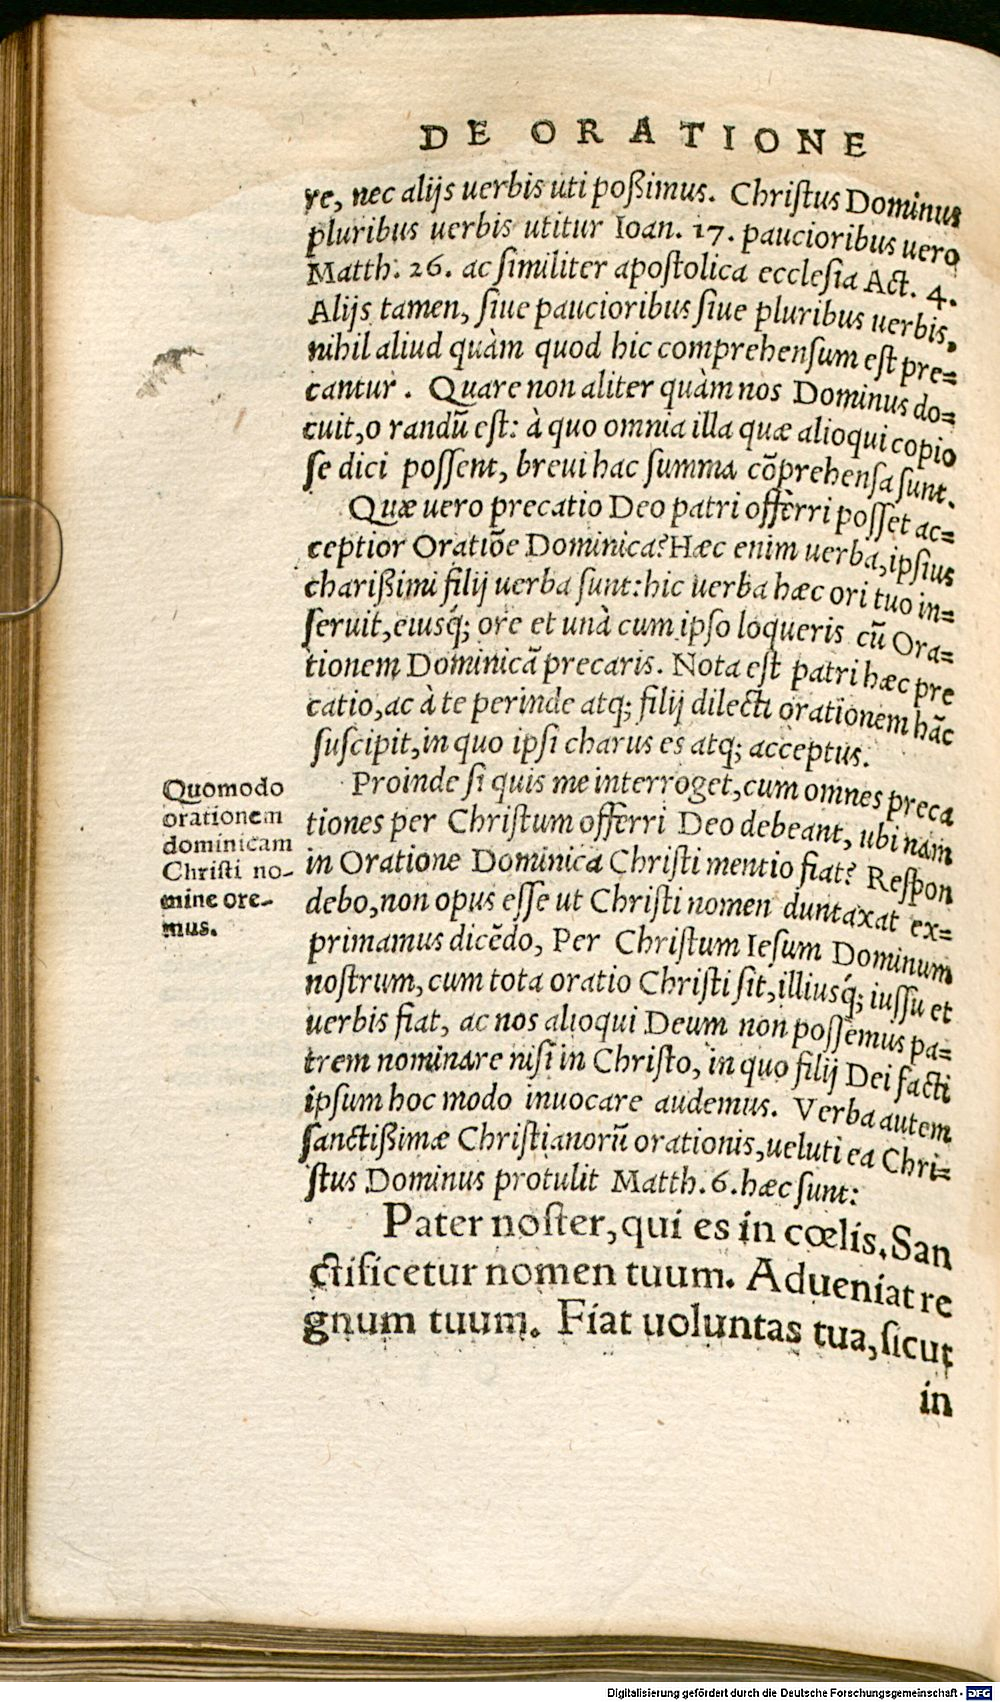 DE ORATIONE
re, nec alijs uerbis uti poßimus. Christus Dominus
pluribus uerbis utitur Ioan. 17. paucioribus uero
Matth. 26. ac similiter apostolica ecclesia Act. 4.
Alijs tamen, siue paucioribus siue pluribus uerbis,
nihil aliud quàm quod hic comprehensum est pre=
cantur. Quare non aliter quàm nos Dominus do=
cuit, o randũ est: à quo omnia illa quæ alioqui copio
se dici possent, breui hac summa cõprehensa sunt.
Quæ uero precatio Deo patri offerri posset ac=
ceptior Oratiõe Dominica? Hæc enim uerba, ipsius
charißimi filij uerba sunt: hic uerba hæc ori tuo in=
seruit, eiusq́; ore et unà cum ipso loqueris cũ Ora=
tionem Dominicã precaris. Nota est patri hæc pre
catio, ac à te perinde atq; filij dilecti orationem hãc
suscipit, in quo ipsi charus es atq; acceptus.
Proinde si quis me interroget, cum omnes preca
tiones per Christum offerri Deo debeant, ubi nam
in Oratione Dominica Christi mentio fiat? Respon
debo, non opus esse ut Christi nomen duntaxat ex=
primamus dicẽdo, Per Christum Iesum Dominum
nostrum, cum tota oratio Christi sit, illiusq́; iussu et
uerbis fiat, ac nos alioqui Deum non possemus pa=
trem nominare nisi in Christo, in quo filij Dei facti
ipsum hoc modo inuocare audemus. Verba autem
sanctißimæ Christianorũ orationis, ueluti ea Chri=
stus Dominus protulit Matth. 6. hæc sunt:
Pater noster, qui es in cœlis. San
ctificetur nomen tuum. Adueniat re
gnum tuum. Fiat uoluntas tua, sicut
in
Quomodo
orationem
dominicam
Christi no-
mine ore-
mus.
Digitalisierung gefördert durch die Deutsche Forschungsgemeinschaft - DFG